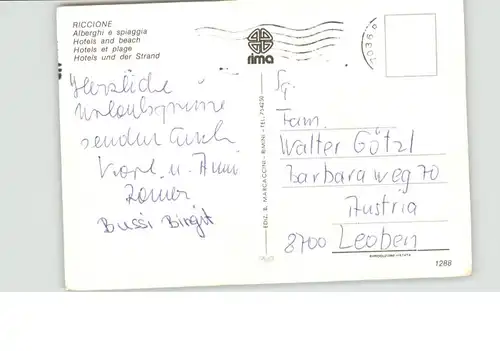 RICCIONE
Alberghi e spiaggia
Hotels and beach
Hotels et plage
Hotels und der Strand
rima
Herzliche
Urlaubsgrüsse
senden Euch
Karl u. Anni
Bussi Birgit
EDIZ. B. MARCACCINI - RIMINI - TEL. 754250
Fam.
Walter Götzl
Barbaraweg 70
Austria
8700 Leoben
1288